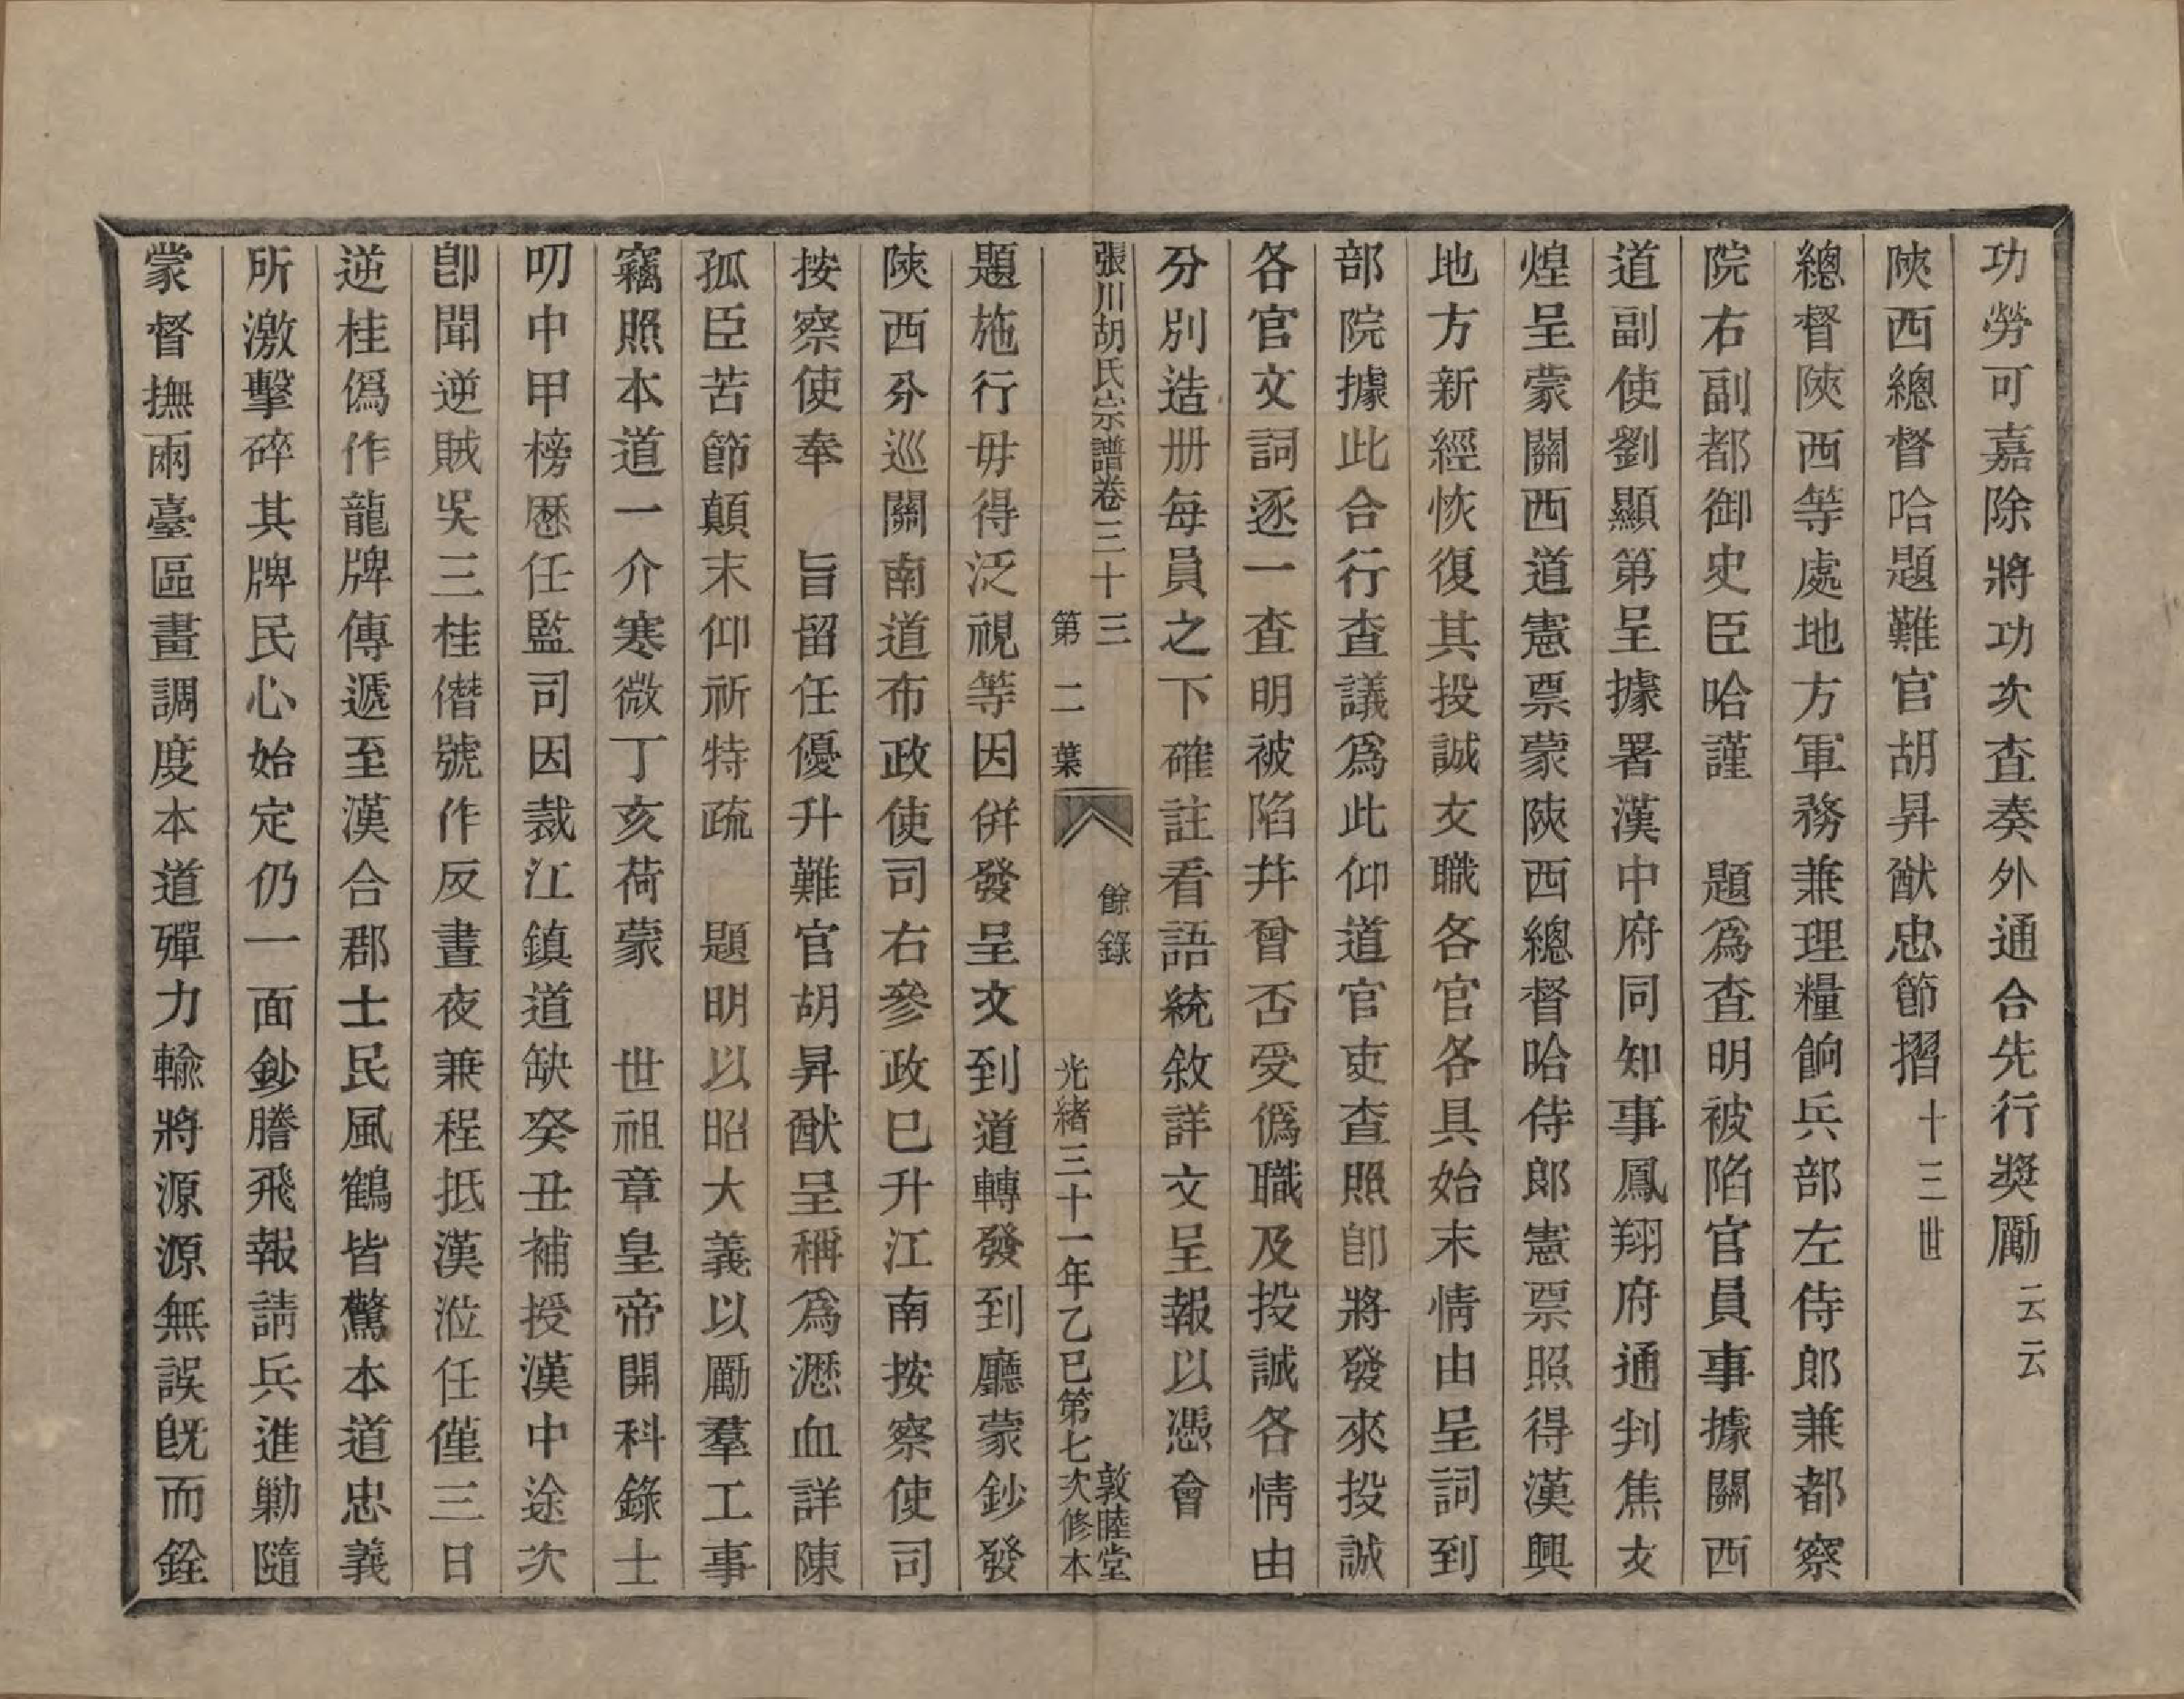 功勞可嘉除將功次查奏外通合先行獎勵云云
陝西總督哈題難官胡昇猷忠節摺十三世
總督陝西等處地方軍務兼理糧餉兵部左侍郎兼都察
院右副都御史臣哈謹 題爲查明被陷官員事據關西
道副使劉顯第呈據署漢中府同知事鳳翔府通判焦友
煌呈蒙關西道憲票蒙陝西總督哈侍郎憲票照得漢興
地方新經恢復其投誠文職各官各具始末情由呈詞到
部院據此合行查議爲此仰道官吏查照卽將發來投誠
各官文詞逐一查明被陷并曾否受僞職及投誠各情由
分別造册每員之下確註看語統敘詳文呈報以憑會
張川胡氏宗譜卷三十三 餘錄 敦睦堂
第二葉 光緒三十一年乙巳第七次修本
題施行毋得泛視等因併發呈文到道轉發到廳蒙鈔發
陝西分巡關南道布政使司右參政已升江南按察使司
按察使奉 旨留任優升難官胡昇猷呈稱爲瀝血詳陳
孤臣苦節顛末仰祈特疏 題明以昭大義以勵羣工事
竊照本道一介寒微丁亥荷蒙 世祖章皇帝開科錄士
叨中甲榜歷任監司因裁江鎮道缺癸丑補授漢中途次
卽聞逆賊吳三桂僭號作反晝夜兼程抵漢涖任僅三日
逆桂僞作龍牌傳遞至漢合郡士民風鶴皆驚本道忠義
所激擊碎其牌民心始定仍一面鈔謄飛報請兵進勦隨
蒙督撫兩臺區畫調度本道殫力輸將源源無誤旣而銓